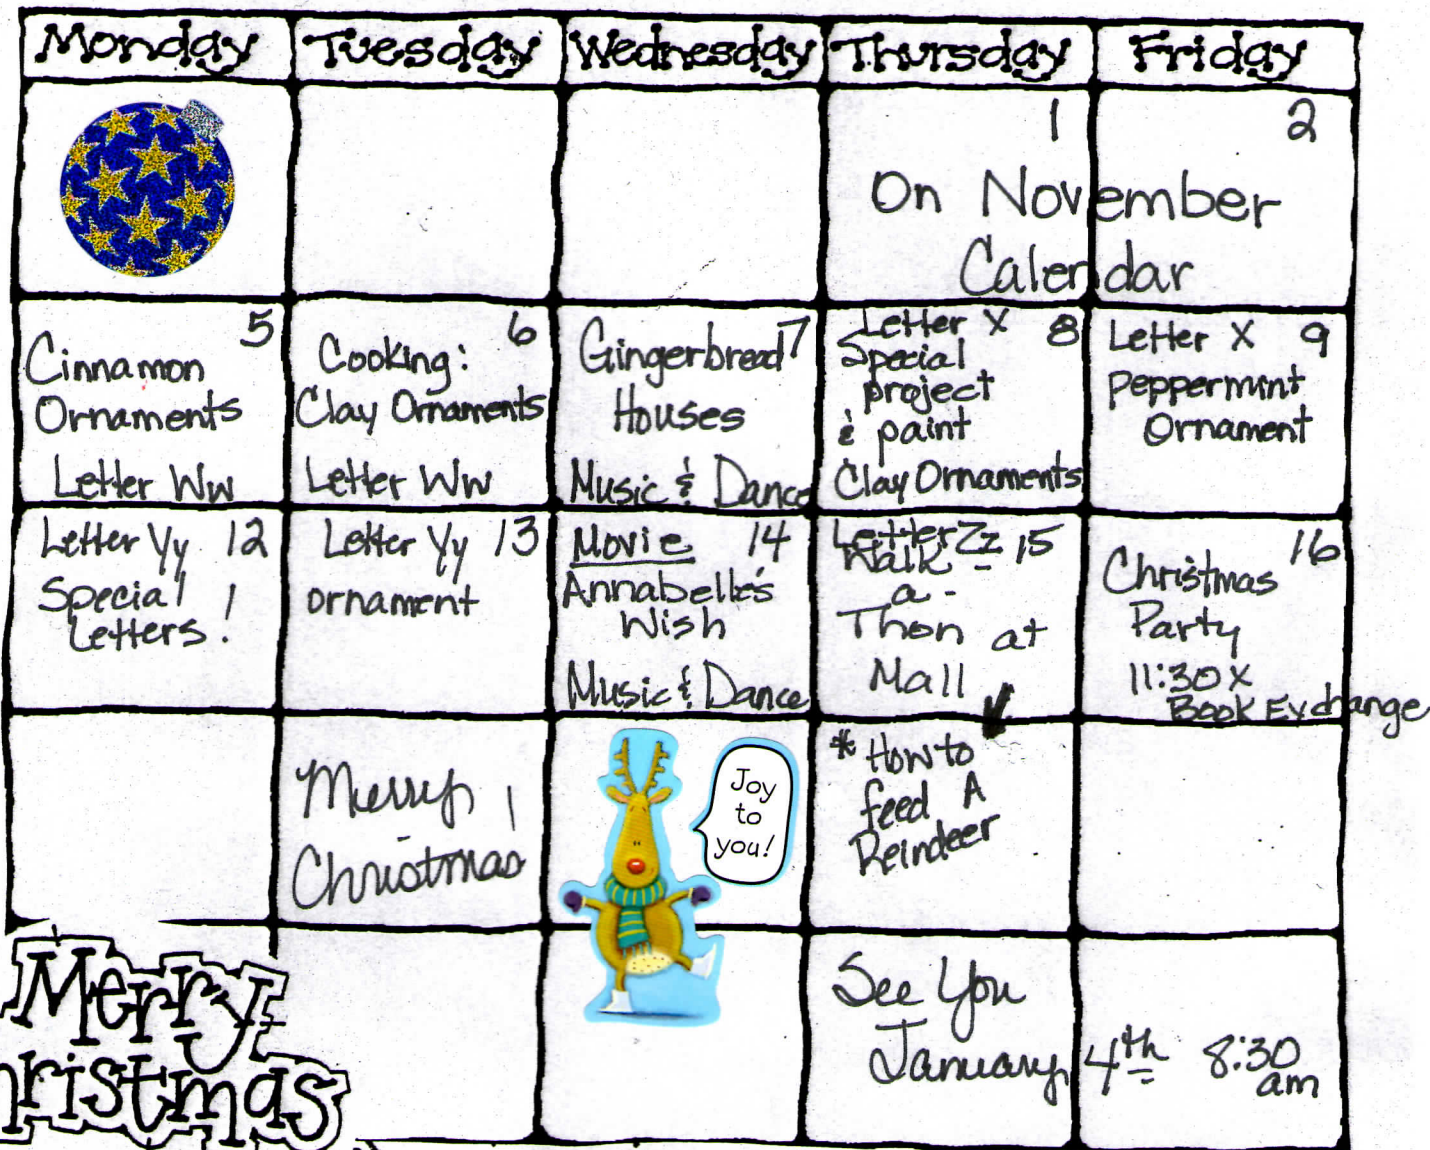 Monday Tuesday Wednesday Thursday Friday
1
2
On November
Calendar
5
Cinnamon
Ornaments
Letter Ww
6
Cooking:
Clay Ornaments
Letter Ww
Gingerbread 7
Houses
Music & Dance
Letter X 8
Special
project
& paint
Clay Ornaments
Letter X 9
Peppermint
Ornament
Letter Yy 12
Special
Letters!
Letter Yy 13
ornament
Movie 14
Annabelle's
Wish
Music & Dance
Letter Zz 15
Walk
a-
Thon at
Mall
16
Christmas
Party
11:30
Book Exchange
Merry
Christmas
Joy
to
you!
* How to
feed A
Reindeer
Merry
Christmas
See You
January 4th 8:30
am